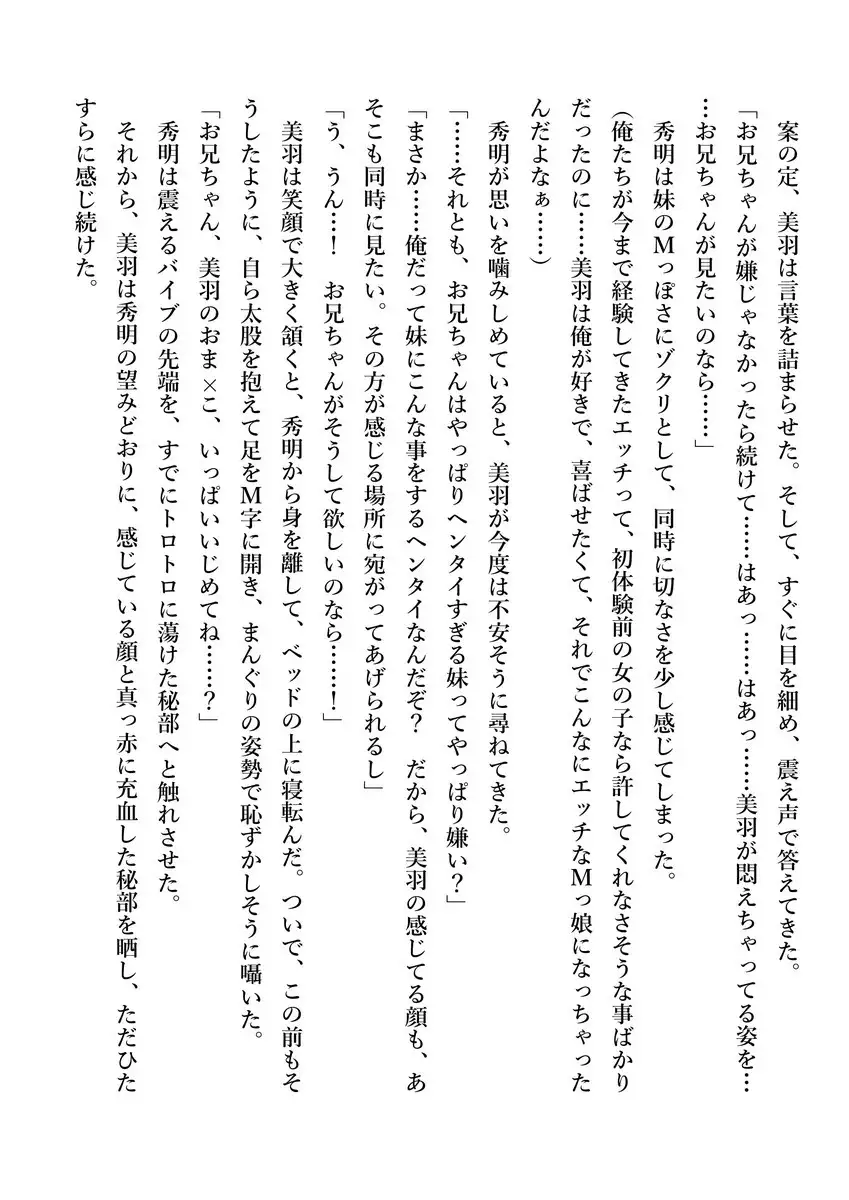 案の定、美羽は言葉を詰まらせた。そして、すぐに目を細め、震え声で答えてきた。
「お兄ちゃんが嫌じゃなかったら続けて……はあっ……はあっ……美羽が悶えちゃってる姿を…
…お兄ちゃんが見たいのなら……」
秀明は妹のMっぽさにゾクリとして、同時に切なさを少し感じてしまった。
(俺たちが今まで経験してきたエッチって、初体験前の女の子なら許してくれなさそうな事ばかり
だったのに……美羽は俺が好きで、喜ばせたくて、それでこんなにエッチなMっ娘になっちゃった
んだよなぁ……)
秀明が思いを噛みしめていると、美羽が今度は不安そうに尋ねてきた。
「……それとも、お兄ちゃんはやっぱりヘンタイすぎる妹ってやっぱり嫌い?」
「まさか……俺だって妹にこんな事をするヘンタイなんだぞ? だから、美羽の感じてる顔も、あ
そこも同時に見たい。その方が感じる場所に宛がってあげられるし」
「う、うん…! お兄ちゃんがそうして欲しいのなら……!」
美羽は笑顔で大きく頷くと、秀明から身を離して、ベッドの上に寝転んだ。ついで、この前もそ
うしたように、自ら太股を抱えて足をM字に開き、まんぐりの姿勢で恥ずかしそうに囁いた。
「お兄ちゃん、美羽のおま×こ、いっぱいいじめてね……?」
秀明は震えるバイブの先端を、すでにトロトロに蕩けた秘部へと触れさせた。
それから、美羽は秀明の望みどおりに、感じている顔と真っ赤に充血した秘部を晒し、ただひた
すらに感じ続けた。